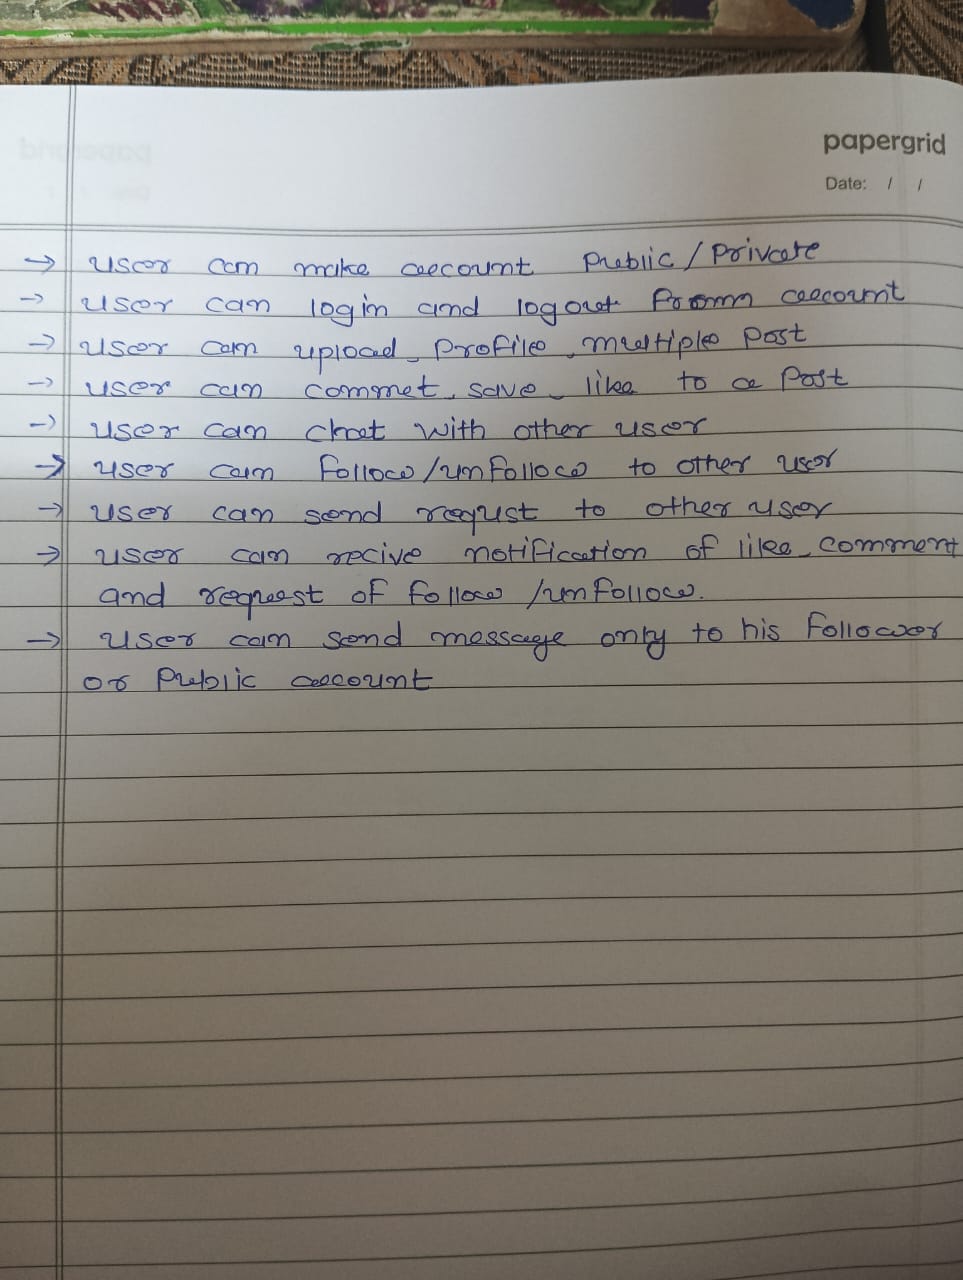 papergrid
Date: / /
→ user can make account Public / Private
→ user can login and logout from account
→ user can upload profile, multiple post
→ user can commet, save, like to a Post
→ user can chat with other user
→ user can follow/unfollow to other user
→ user can send requst to other user
→ user can recive notification of like, comment
and request of follow /unfollow.
→ user can send message only to his follower
or Public account